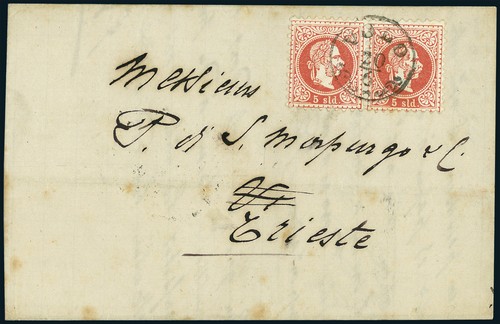 5 sld 5 sld
Messieurs
P. di S. Morpurgo & C.
Trieste